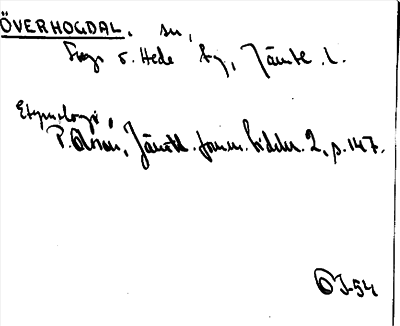 ÖVERHOGDAL. sn,
Svegs o. Hede tg, Jämtl. l.
Etymologi,
P. Olsson, Jämtl. forn. 2, p. 147.
OJ-54